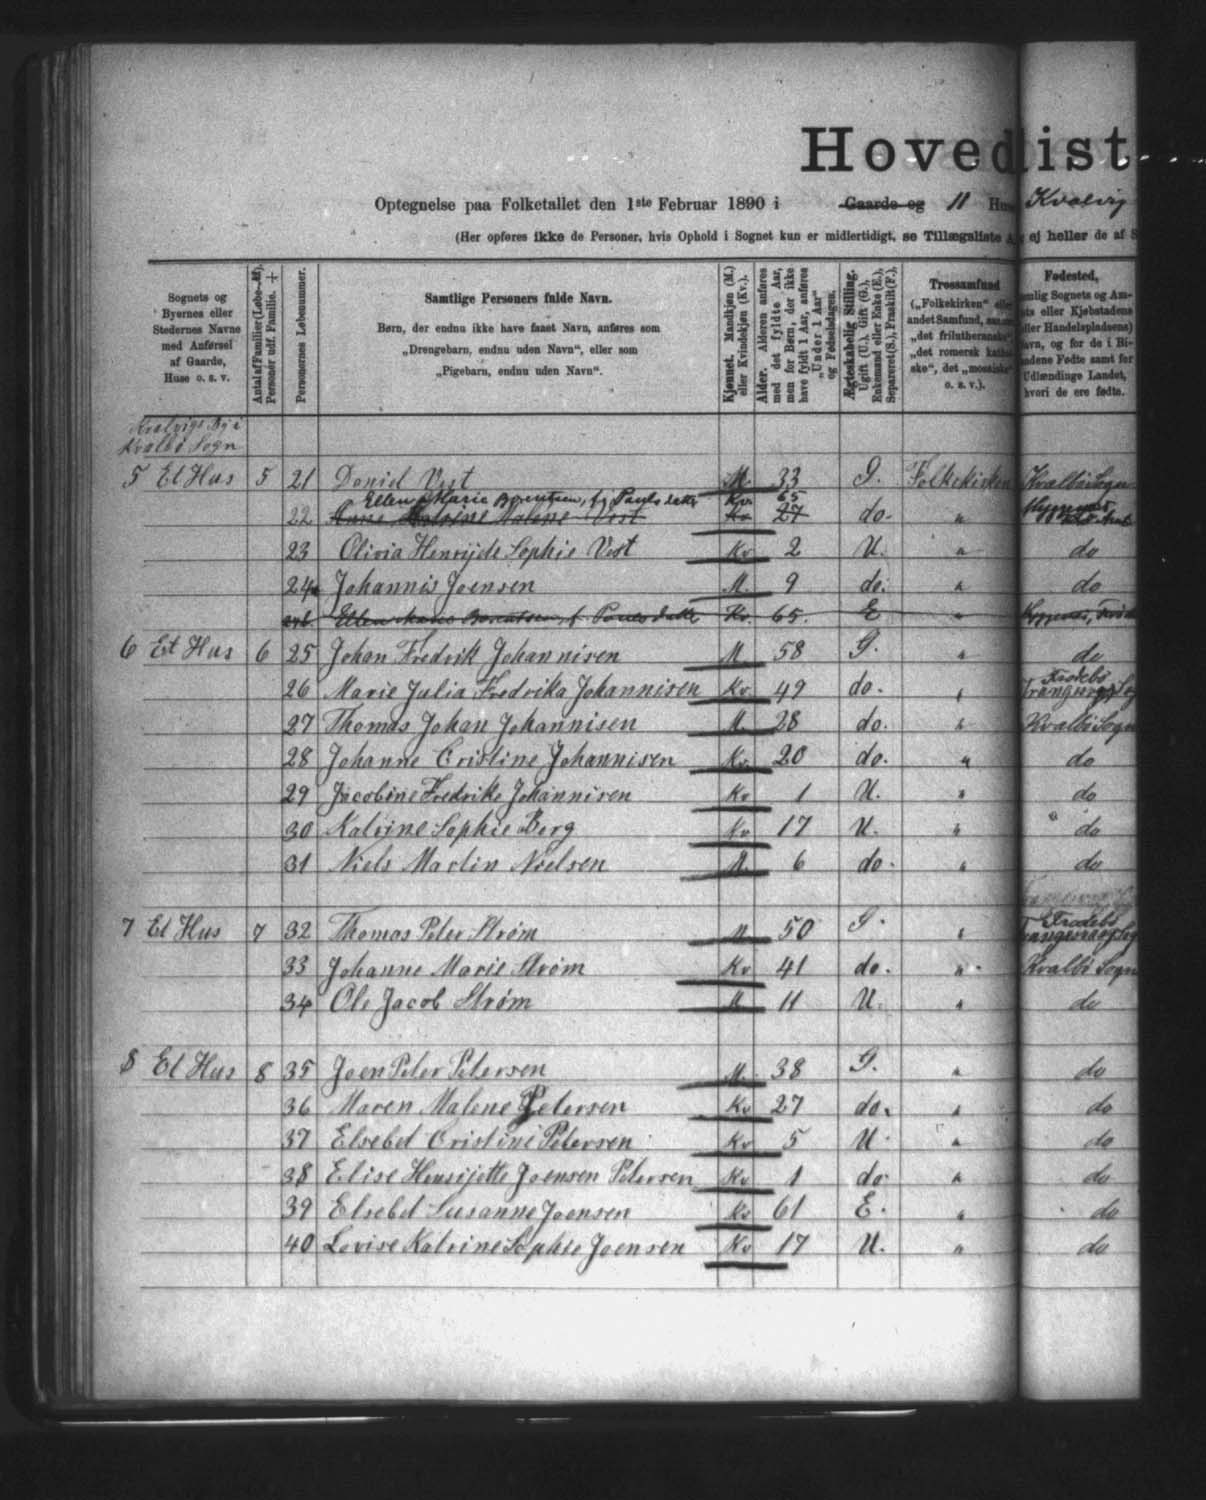 Hovedlist
Optegnelse paa Folketallet den 1ste Februar 1890 i Gaarde og 11 Huse Kvalvig
(Her opføres ikke de Personer, hvis Ophold i Sognet kun er midlertidigt, se Tillægsliste A, ej heller de af S
Sognets og Byernes eller Stedernes Navne med Anførsel af Gaarde, Huse o. s. v.
Antal af Familier (Løbe-№). Personer udf. Familie. +
Personernes Løbenummer.
Samtlige Personers fulde Navn.
Børn, der endnu ikke have faaet Navn, anføres som
„Drengebarn, endnu uden Navn“, eller som
„Pigebarn, endnu uden Navn“.
Kjønnet. Mandkjøn (M.) eller Kvindekjøn (Kv.).
Alder. Alderen anføres med det fyldte Aar, men for Børn, der ikke have fyldt 1 Aar, anføres „Under 1 Aar“ og Fødselsdagen.
Ægteskabelig Stilling. Ugift (U.), Gift (G.), Enkemand eller Enke (E.), Separeret (S.), Fraskilt (F.),
Trossamfund („Folkekirken“ eller andet Samfund, „det frilutheranske“, „det romersk katho ske“, det „mosaiske“ o. s. v.).
Fødested, nemlig Sognets og Am- eller Kjøbstadens eller Handelspladsens) Navn, og for de i Bi- landene Fødte samt for Udlændinge Landet, hvori de ere fødte.
Kvalvigs By i
Kvalbø Sogn
5 Et Hus 5 21 Daniel Vest M. 33 G. Folkekirken Kvalbø Sogn
Ellen Marie Berentsen, f. Pauls datter Kv. 65
22 Anne Katrine Malene Vest Kv 27 do. "
23 Olivia Henrijete Sophie Vest Kv 2 U. " do
24 Johannis Joensen M. 9 do. " do
Ellen Marie Berentsen, f. Poulsdatter Kv. 65. E "
6 Et Hus 6 25 Johan Fredrik Johannisen M 58 G. " do
26 Marie Julia Fredrika Johannisen Kv 49 do. " Frodebø Trangisvaag Sog
27 Thomas Johan Johannisen M. 28 do. " Kvalbø Sogn
28 Johanne Cristine Johannisen Kv. 20 do. " do
29 Jacobine Fredrike Johannisen Kv 1 U. " do
30 Katrine Sophie Berg Kv 17 U. " do
31 Niels Martin Nielsen M. 6 do. " do
7 Et Hus 7 32 Thomas Peter Strøm M. 50 G. " Frodebø Trangisvaag Sog
33 Johanne Marie Strøm Kv 41 do. " Kvalbø Sogn
34 Ole Jacob Strøm M 11 U. " do
8 Et Hus 8 35 Joen Peter Petersen M. 38 G. " do
36 Maren Malene Petersen Kv 27 do. " do
37 Elsebet Cristine Petersen Kv 5 U. " do
38 Elise Henrijette Joensen Petersen Kv 1 do " do
39 Elsebet Susanne Joensen Kv 61 E. " do
40 Lovise Katrine Sophie Joensen Kv 17 U. " do